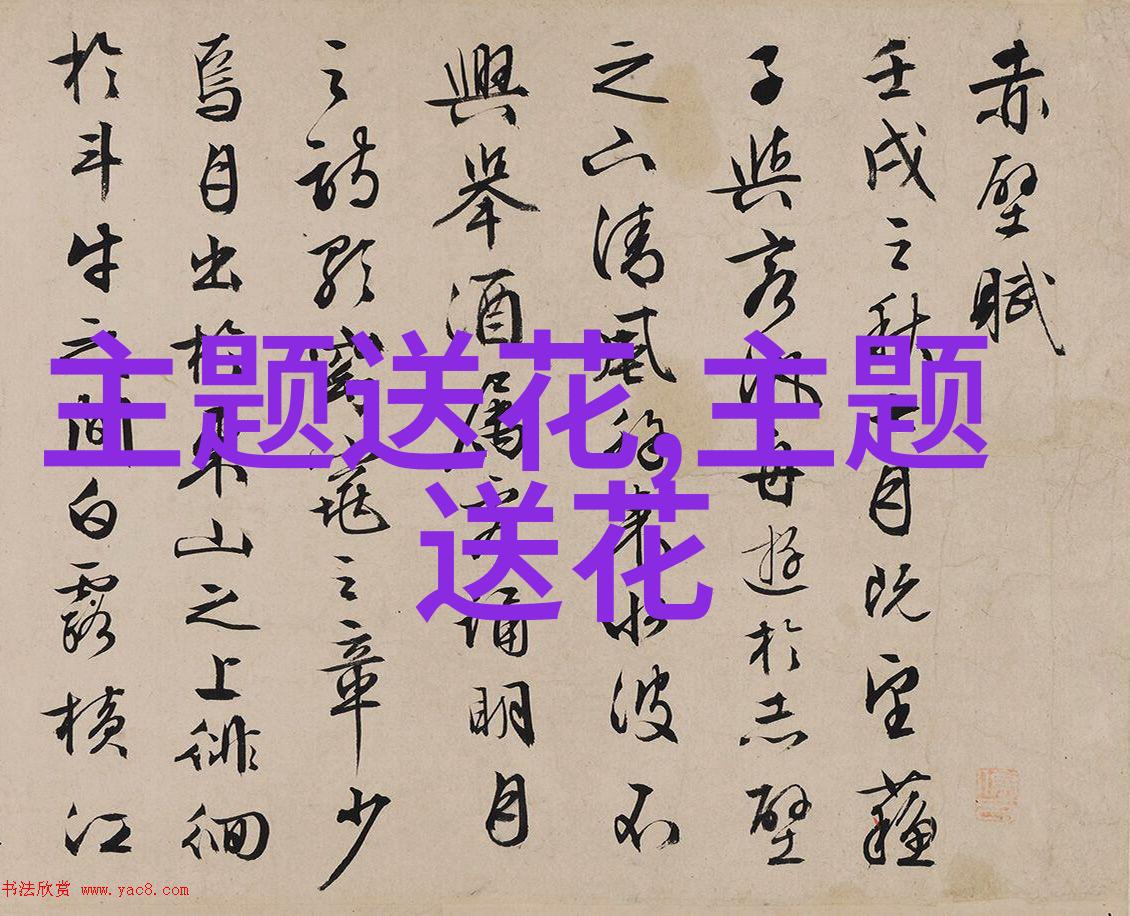 赤壁賦
壬戌之秋七月既望蘇
子與客汎舟遊於赤壁
之下清風徐來水波不
興舉酒屬客誦明月
之詩歌窈窕之章少
焉月出於東山之上徘徊
於斗牛之間白露橫江
主题送花,主题
送花
书法欣赏 www.yac8.com